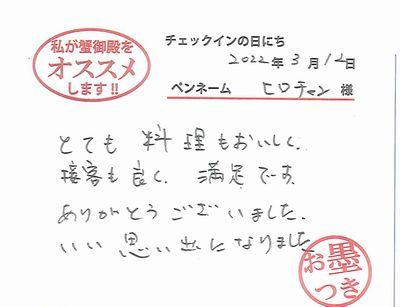 私が蟹御殿を
オススメ
します!!
チェックインの日にち
2022年3月12日
ペンネーム ヒロチャン 様
とても 料理もおいしく、
接客も良く、満足です。
ありがとうございました。
いい思い出になりました
お墨
つき